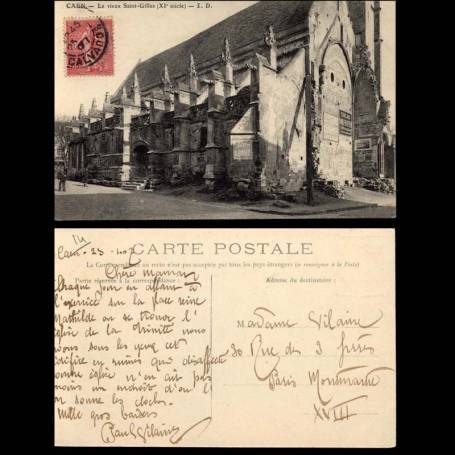 CAEN. — Le vieux Saint-Gilles (XIᵉ siècle) — L. D.
CALVADOS
14
CARTE POSTALE
La Correspondance au recto n'est pas acceptée par tous les pays étrangers (se renseigner à la Poste)
Partie réservée à la correspondance :
Adresse du destinataire :
Caen. 23
Chère maman
Chaque jour en allant à
l'exercice sur la place reine
Mathilde ou se trouve l'
église de la Trinité nous
avons sous les yeux cet
édifice en ruines que
église n'en ait pas
moins un clocher d'où l'
on sonne les cloches.
Mille gros baisers
Paul Vilaine
Madame Vilaine
30 Rue des 3 frères
Paris Montmartre
XVIII